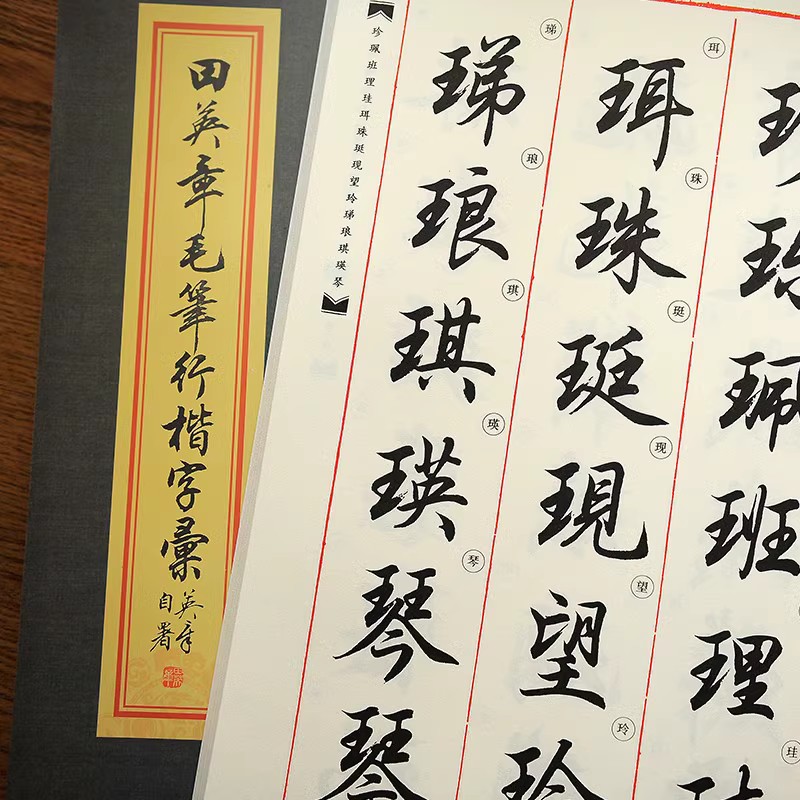 田英章毛筆行楷字彙
英章
自署
珍珮班理珪珥珠珽现望玲珶琅琪瑛琴
珮班理
珪
珥珠珽現望玲
珥珠珽现望玲
珶琅琪瑛琴琴
珶琅琪瑛琴